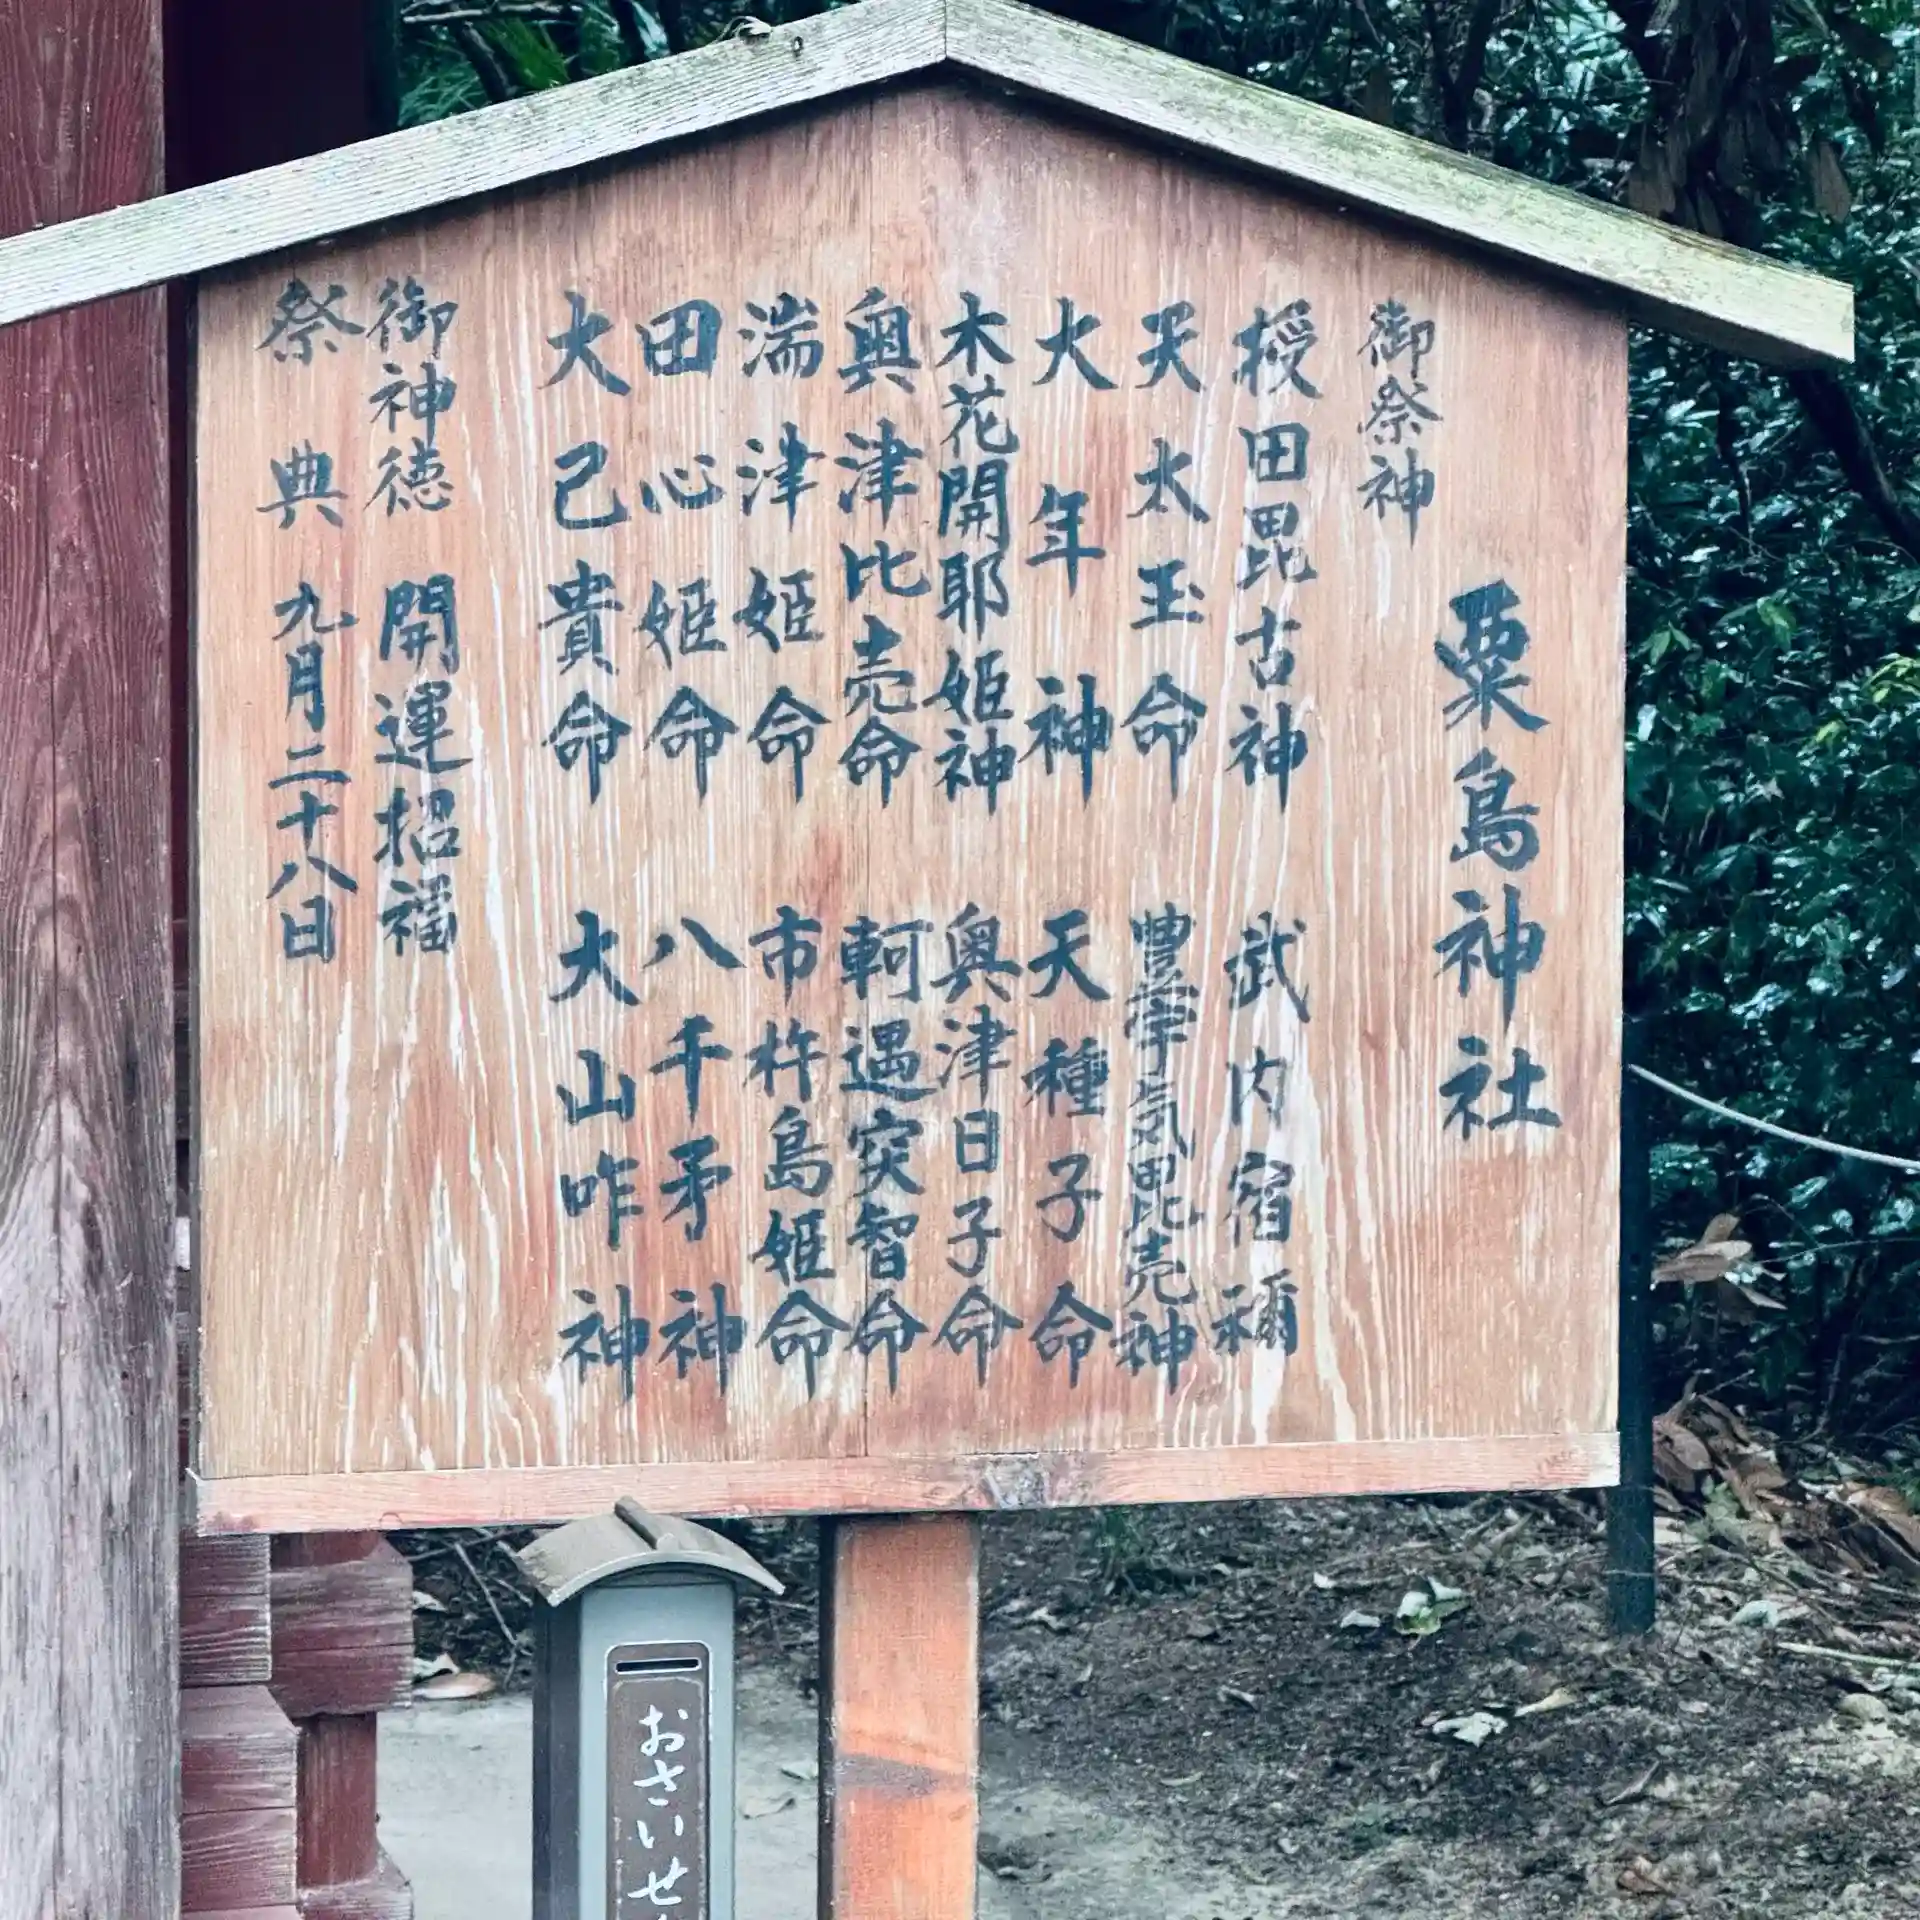 粟島神社
御祭神
授田毘古神
天太玉命
大年神
木花開耶姫神
奥津比売命
湍津姫命
田心姫命
大己貴命
武内宿禰
豊宇気毘売神
天種子命
奥津日子命
軻遇突智命
市杵島姫命
八千矛神
大山咋神
御神徳 開運招福
祭典 九月二十八日
おさいせ